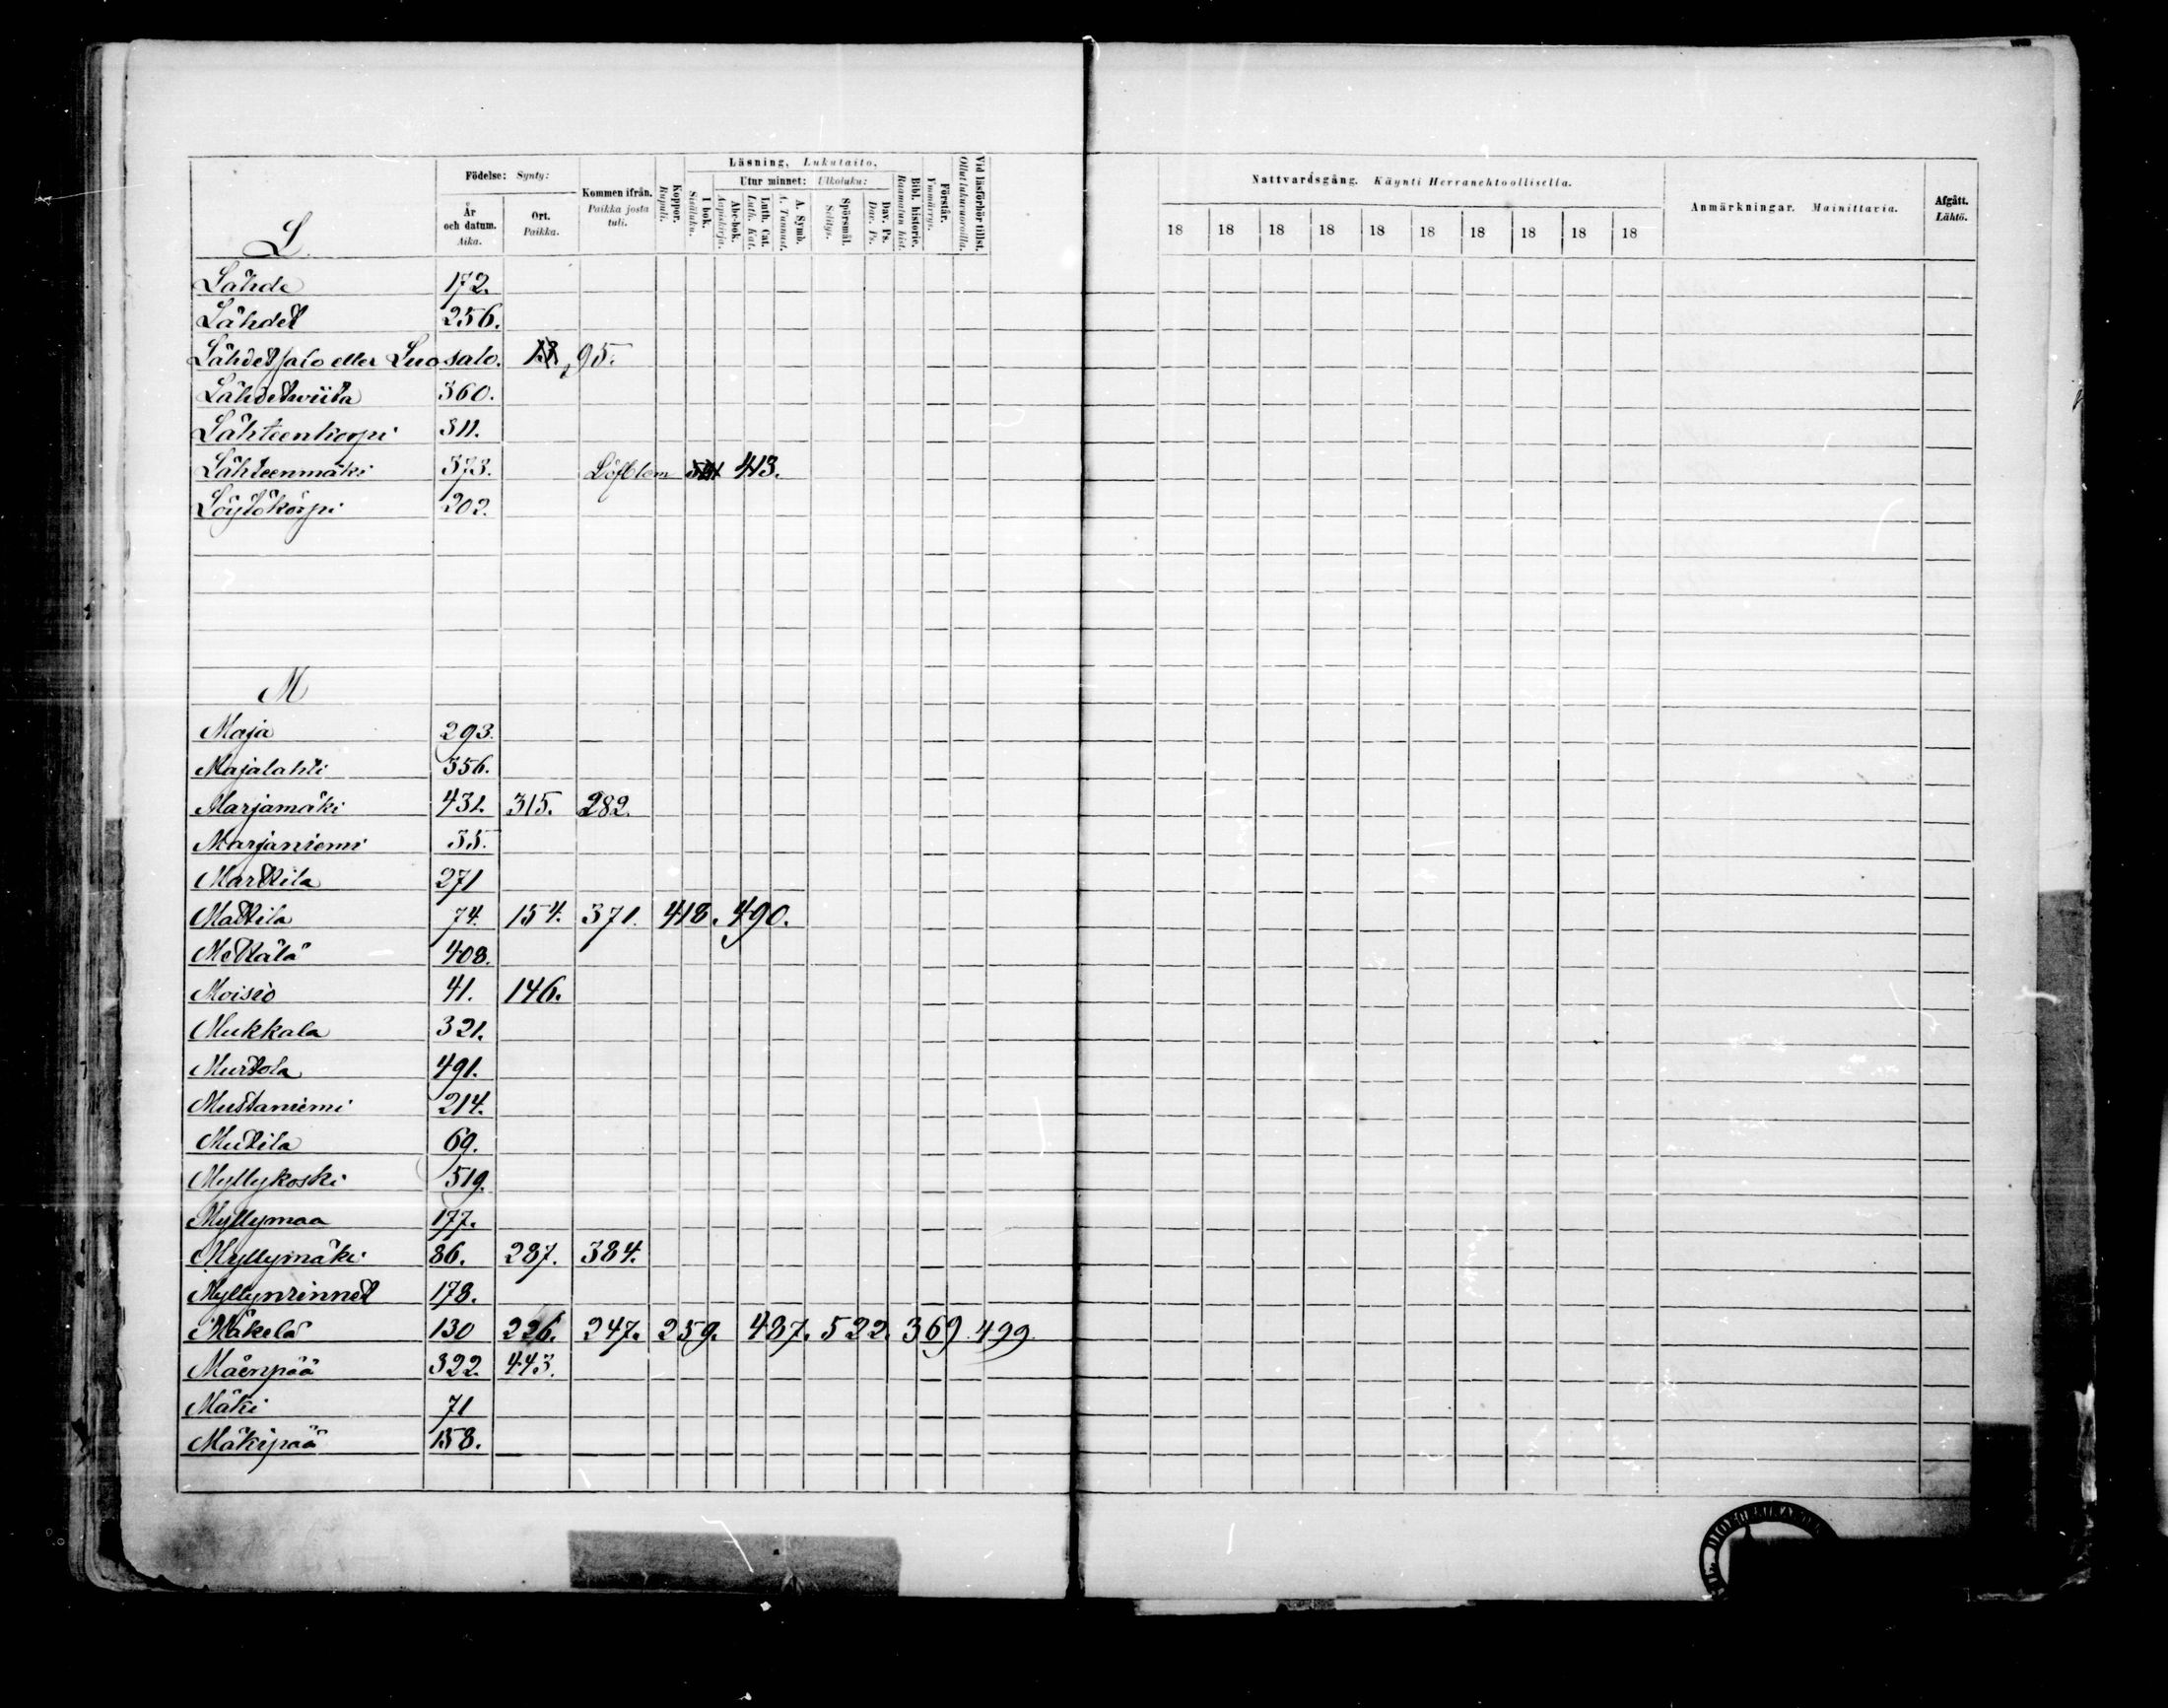 Läsning, Lukutaito,
Födelse: Synty:
Utur minnet: Ulkoluku:
Kommen ifrån. Paikka josta tuli.
Koppor. Rupuli.
I bok. Sisäluku.
Abc-bok. Aapiskirja.
Luth. Cat. Luth. Kat.
A. Symb. A. Tunnust.
Spörsmål. Selitys.
Dav. Ps. Dav. Ps.
Bibl. historie. Raamatun hist.
Förstår. Ymmärrys.
Vid läsförhör tillst. Ollut lukuvuoroilla.
År och datum. Aika.
Ort. Paikka.
Nattvardsgång. Käynti Herranehtoollisella.
18 18 18 18 18 18 18 18 18 18
Anmärkningar. Mainittavia.
Afgått. Lähtö.
L
Lähde 172.
Lähdet 256.
Lähdetsalo eller Luosalo. 95.
Lähdetwiita 360.
Lähteenkorpi 311.
Lähteenmäki 373. Löfblom 413.
Löytökorpi 202.
M
Maja 293.
Majalahti 356.
Marjamäki 431. 315. 282.
Marjaniemi 35.
Marttila 271
Mattila 74. 154. 371. 418. 490.
Mettälä 408.
Moisio 41. 146.
Mukkala 321.
Murtola 491.
Mustaniemi 214.
Mutila 69.
Myllykoski 519.
Myllymaa 177.
Myllymäki 86. 287. 384.
Myllynrinnet 178.
Mäkelä 130 226. 247. 259. 487. 522. 369. 499.
Mäenpää 322. 443.
Mäki 71
Mäkipää 158.